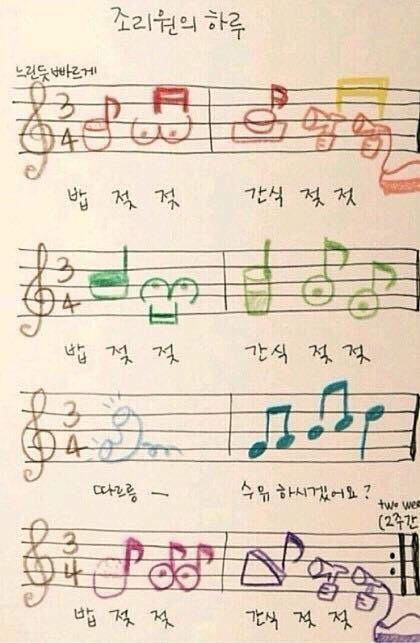 조리원의 하루
느린듯 빠르게
3
4
밥 젖 젖 간식 젖 젖
3
4
밥 젖 젖 간식 젖 젖
3
4
따르릉 — 수유 하시겠어요?
two wee
(2주간
3
4
밥 젖 젖 간식 젖 젖